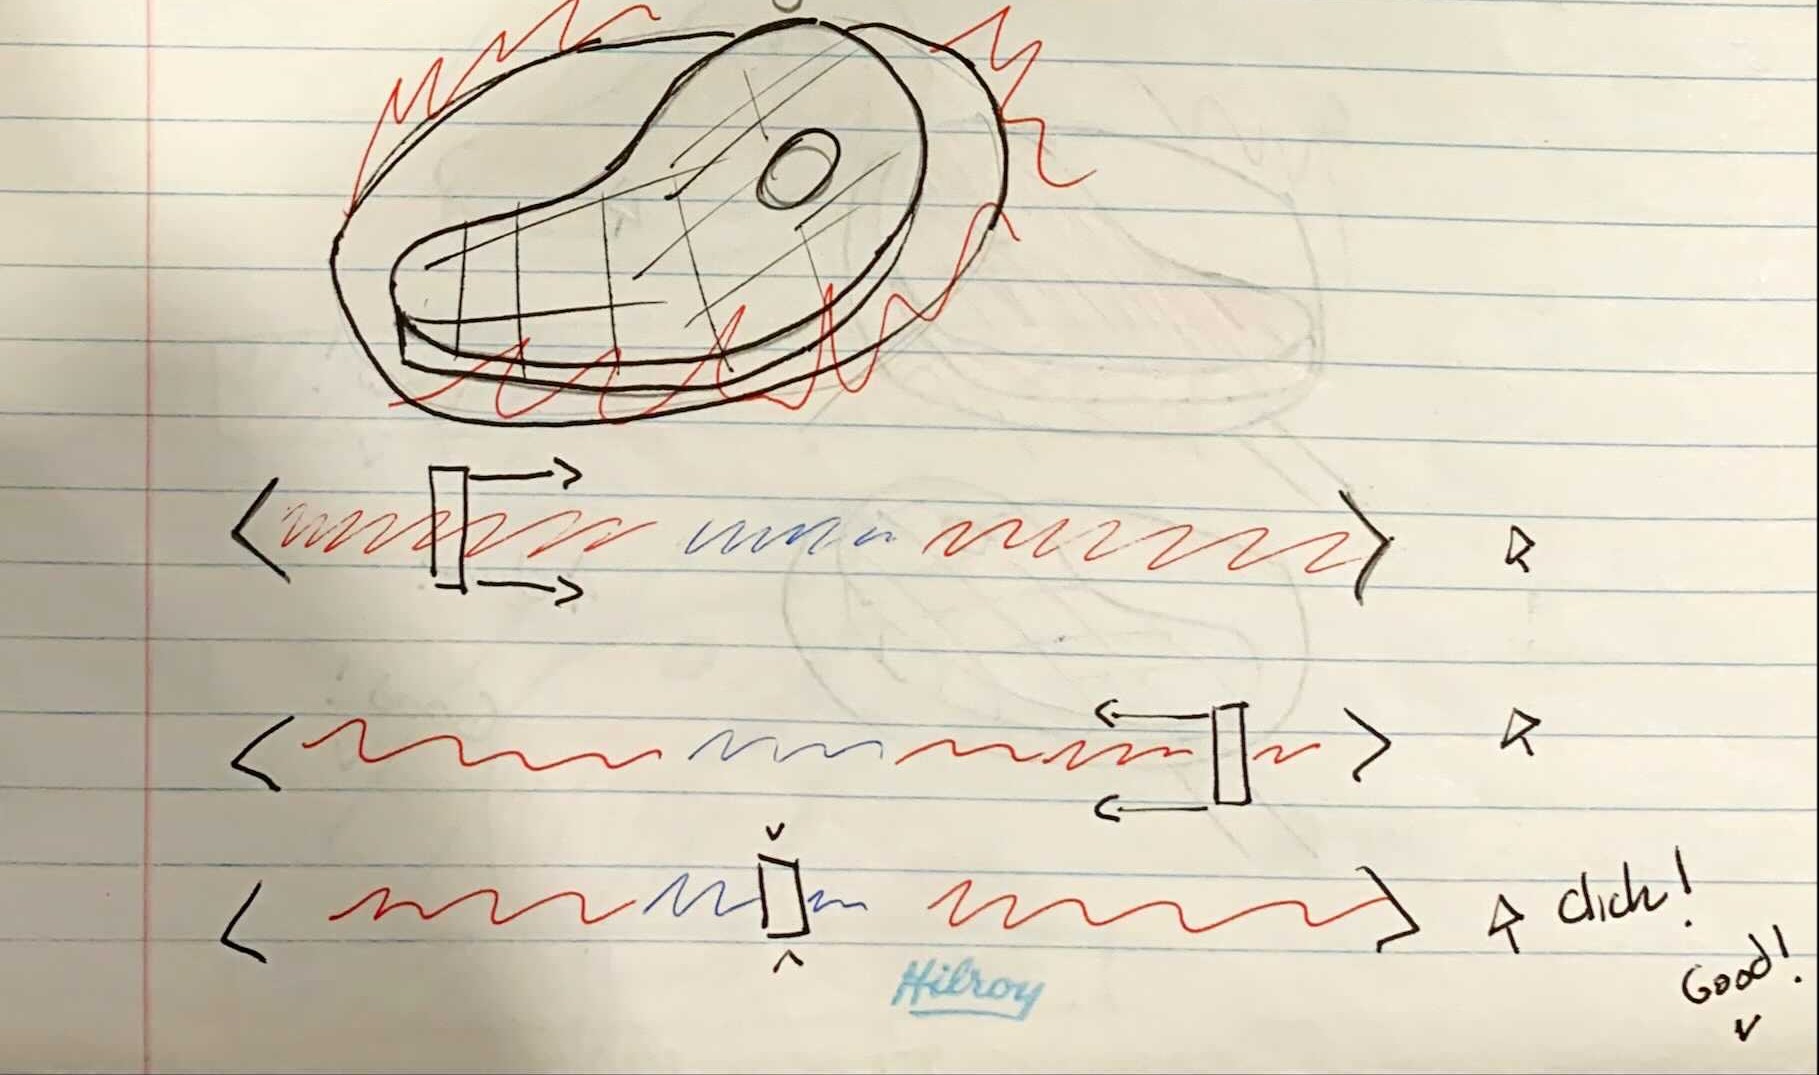 click!
Good!
Hilroy